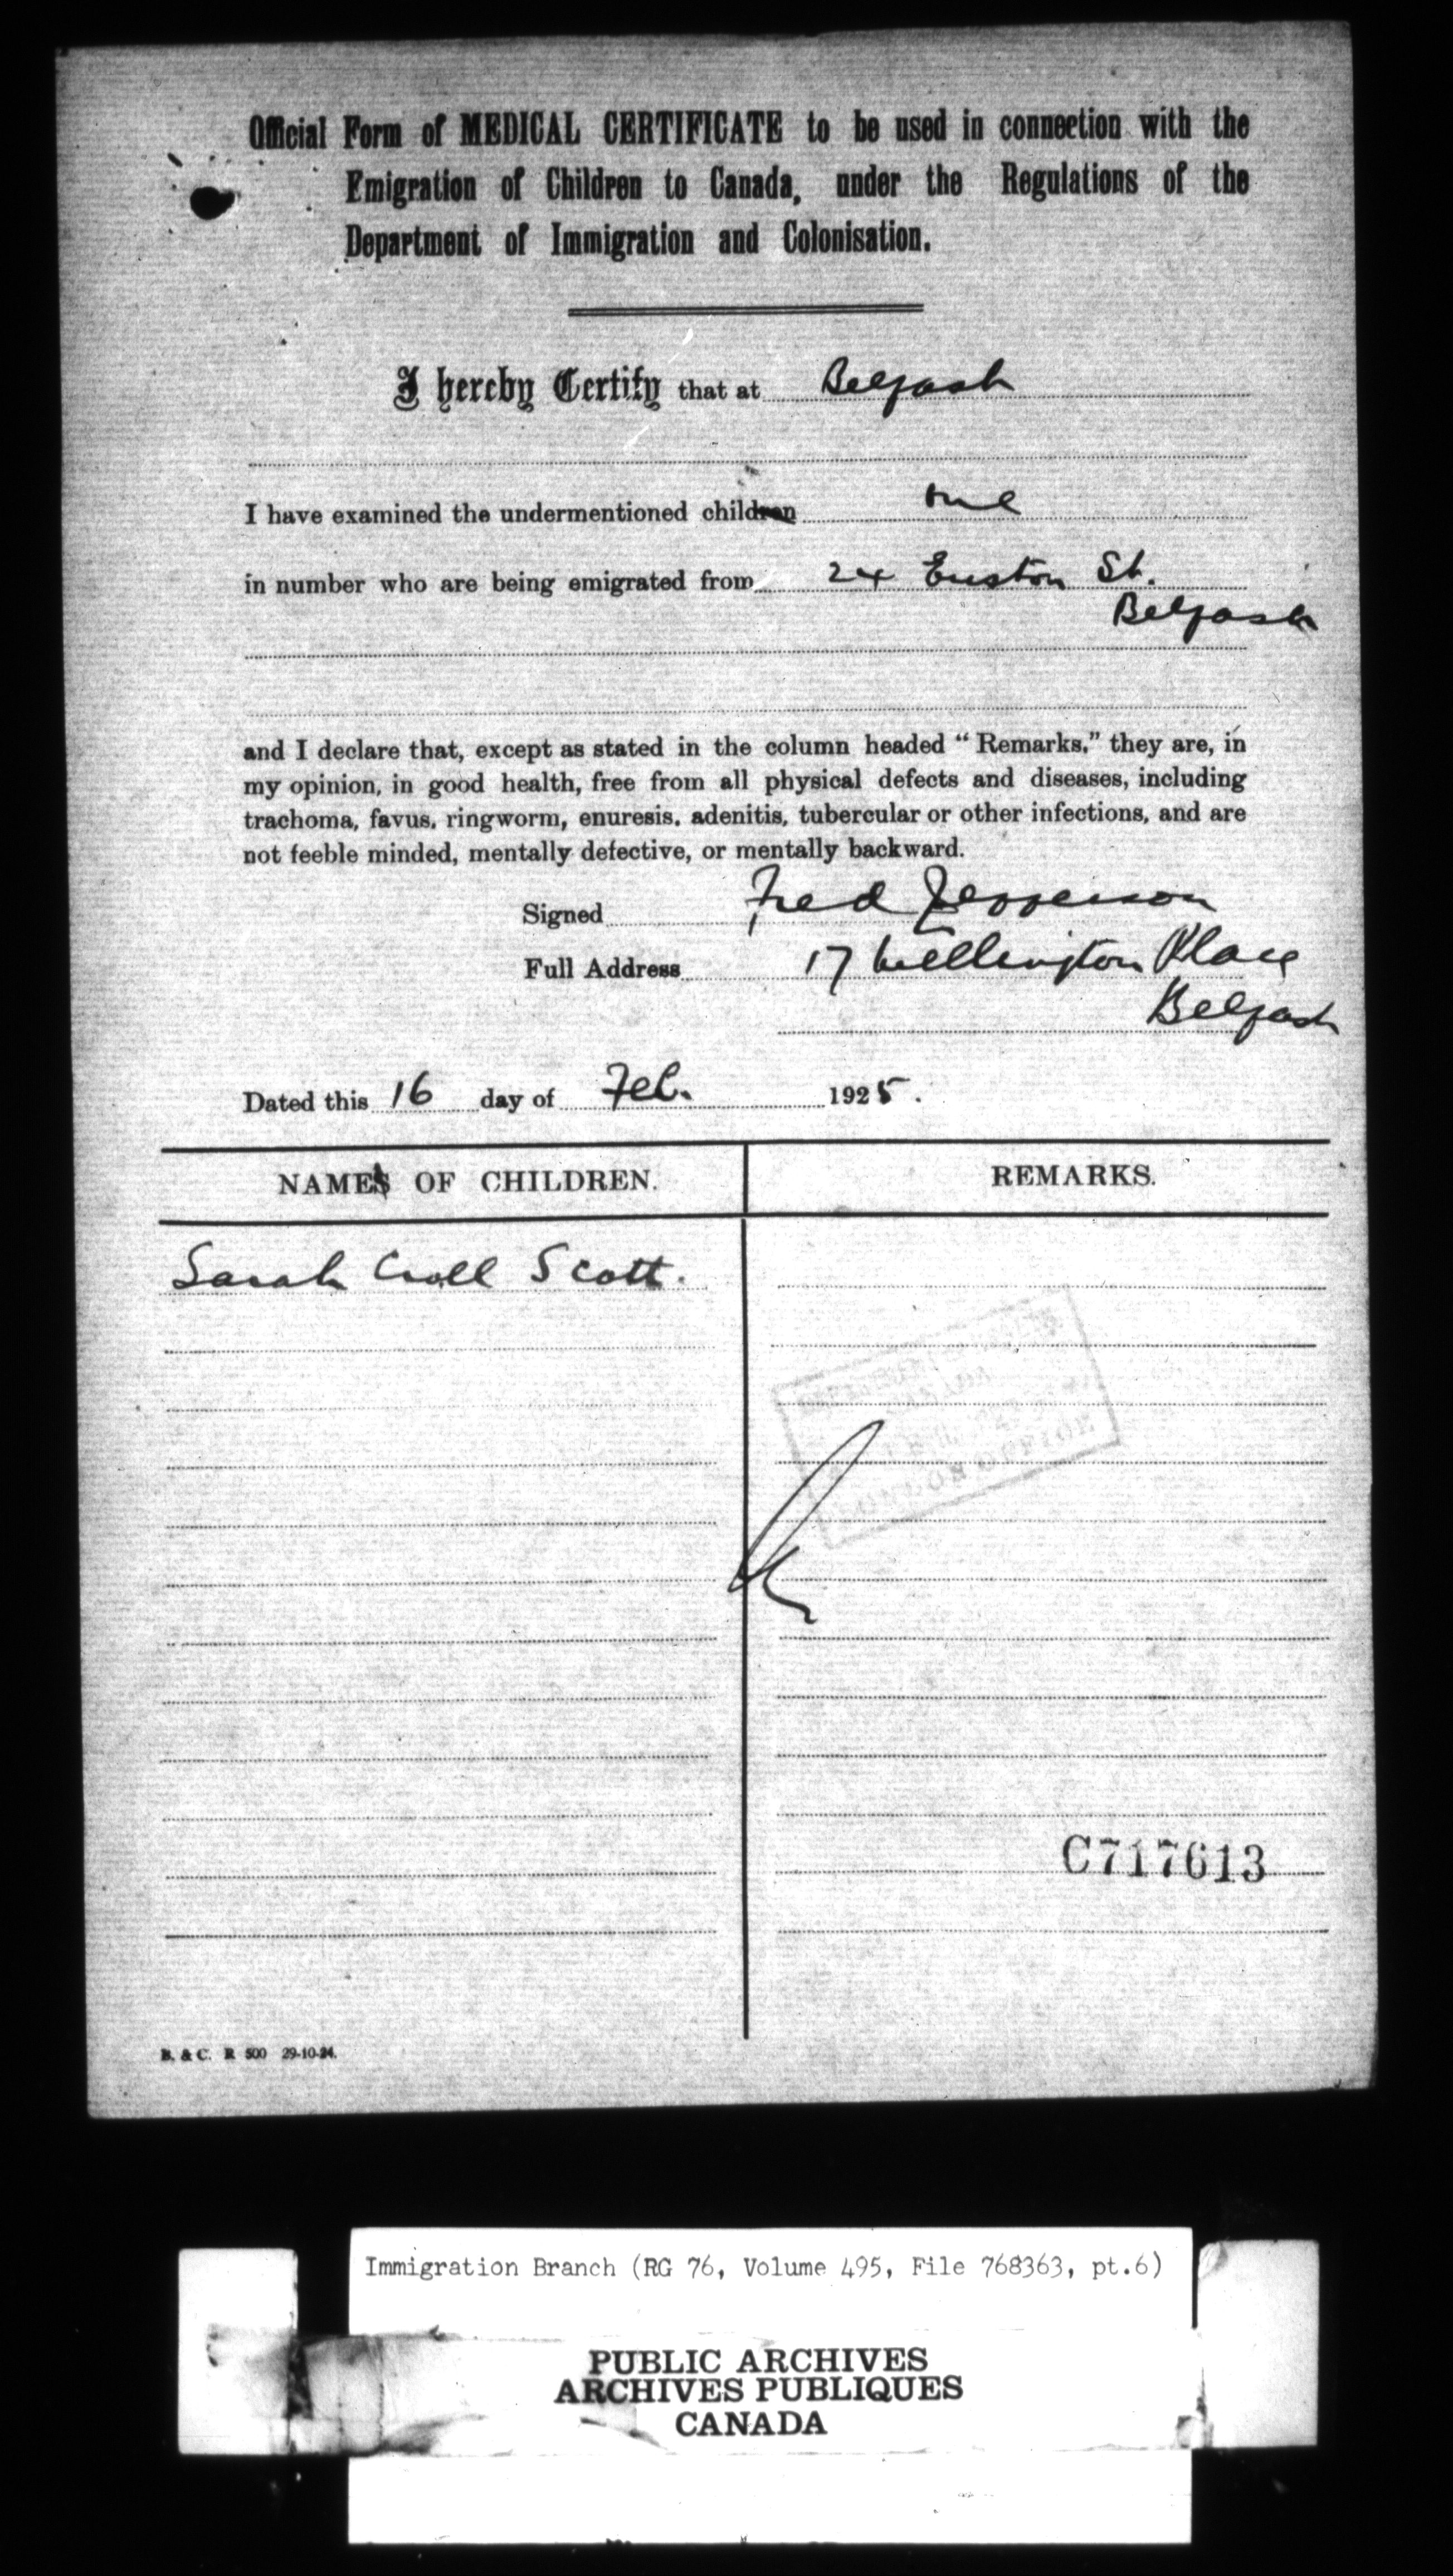 Official Form of MEDICAL CERTIFICATE to be used in connection with the
Emigration of Children to Canada, under the Regulations of the
Department of Immigration and Colonisation.
I hereby Certify that at Belfast
I have examined the undermentioned children one
in number who are being emigrated from 24 Euston St.
Belfast
and I declare that, except as stated in the column headed “Remarks,” they are, in
my opinion, in good health, free from all physical defects and diseases, including
trachoma, favus, ringworm, enuresis, adenitis, tubercular or other infections, and are
not feeble minded, mentally defective, or mentally backward.
Signed Fred Jefferson
Full Address 17 Wellington Place
Belfast
Dated this 16 day of Feb. 1925.
NAMES OF CHILDREN.
REMARKS.
Sarah Croll Scott.
LONDON OFFICE
C717613
B. & C. R 500 29-10-24.
Immigration Branch (RG 76, Volume 495, File 768363, pt.6)
PUBLIC ARCHIVES
ARCHIVES PUBLIQUES
CANADA